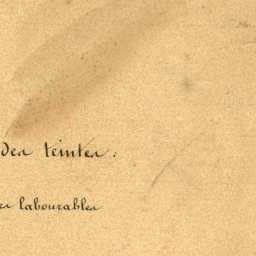 des teintes.
es labourables